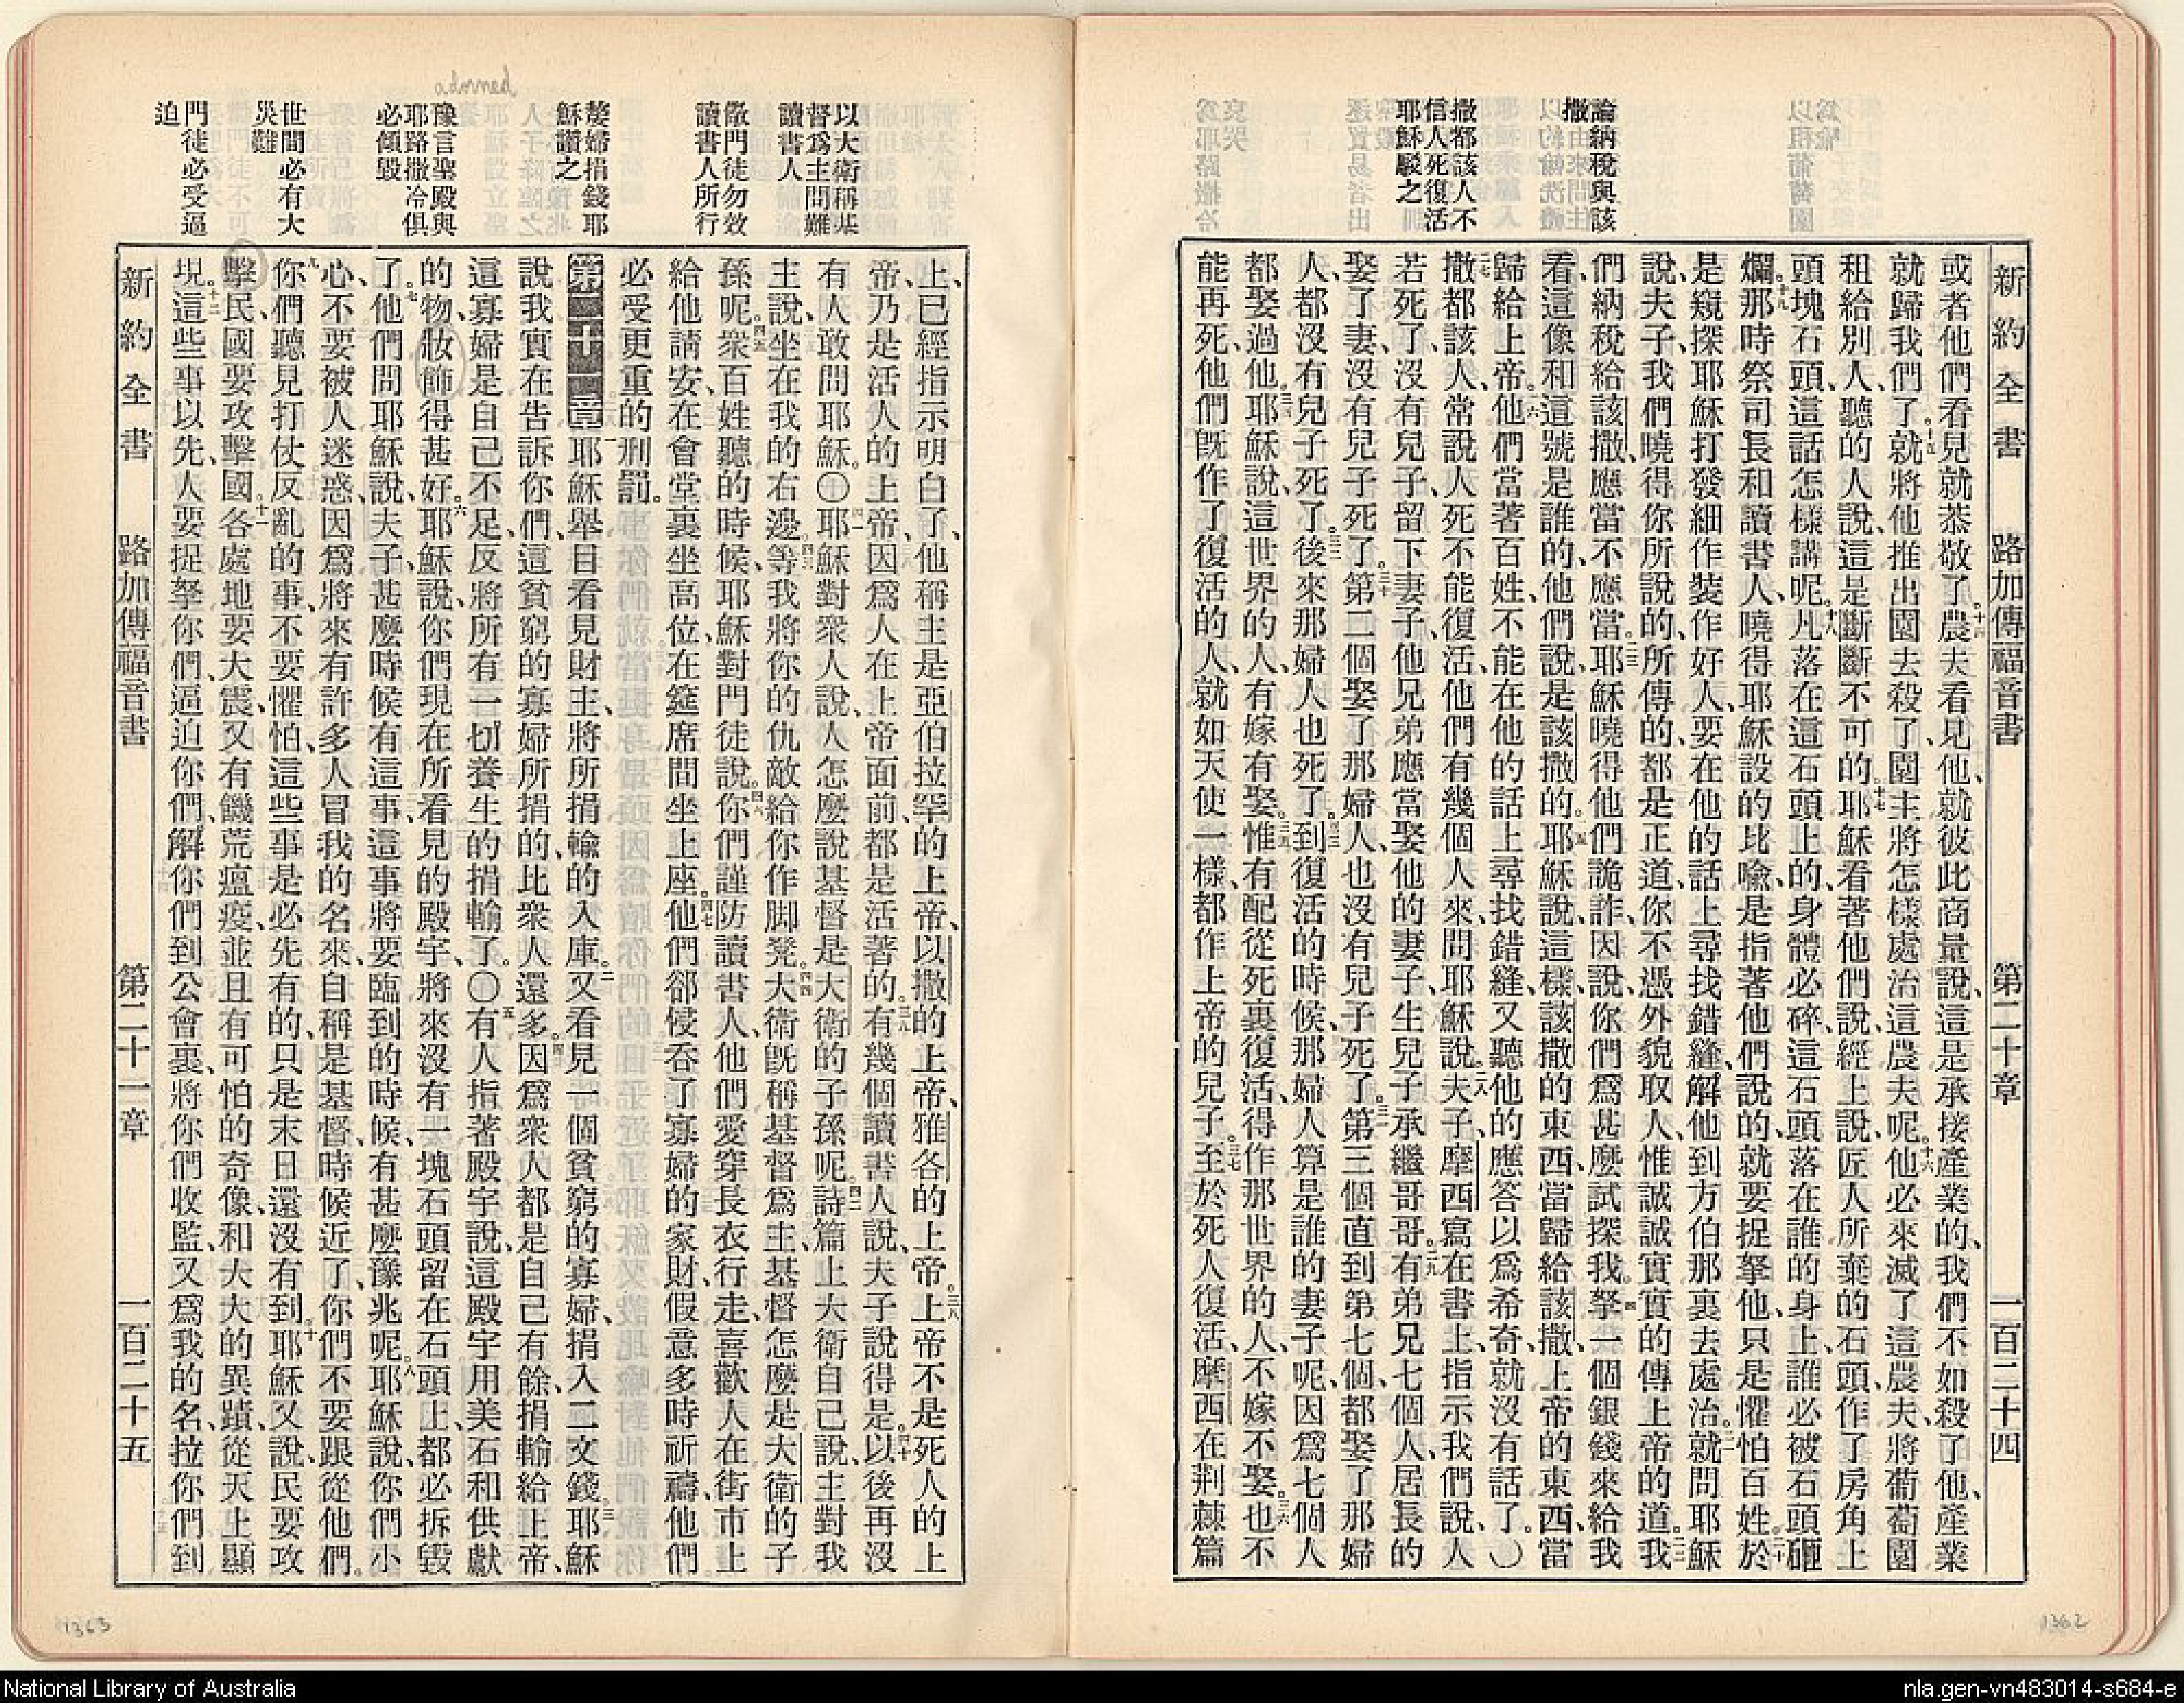 新約全書 路加傳福音書 第二十章 一百二十四
論納稅與該
撒
撒都該人不
信人死復活
耶穌駁之
或者他們看見就恭敬了。十四農夫看見他、就彼此商量說、這是承接產業的、我們不如殺了他、產業
就歸我們了。十五就將他推出園去殺了、園主將怎樣處治這農夫呢。十六他必來滅了這農夫、將葡萄園
租給別人、聽的人說、這是斷斷不可的。十七耶穌看著他們說、經上說、匠人所棄的石頭、作了房角上
頭塊石頭、這話怎樣講呢。十八凡落在這石頭上的、身體必碎、這石頭落在誰的身上、誰必被石頭砸
爛。十九那時祭司長和讀書人、曉得耶穌設的比喻、是指著他們說的、就要捉拏他、只是懼怕百姓。二十於
是窺探耶穌、打發細作裝作好人、要在他的話上尋找錯縫、解他到方伯那裏去處治。二一就問耶穌
說、夫子、我們曉得你所說的、所傳的、都是正道、你不憑外貌取人、惟誠誠實實的傳上帝的道。二二我
們納稅給該撒、應當不應當。二三耶穌曉得他們詭詐、因說、你們爲甚麼試探我。二四拏一個銀錢來給我
看、這像和這號是誰的、他們說、是該撒的。二五耶穌說、這樣、該撒的東西、當歸給該撒、上帝的東西、當
歸給上帝。二六他們當著百姓、不能在他的話上尋找錯縫、又聽他的應答、以爲希奇、就沒有話了。〇
二七撒都該人、常說人死不能復活、他們有幾個人來、問耶穌說。二八夫子、摩西寫在書上、指示我們說、人
若死了、沒有兒子、留下妻子、他兄弟應當娶他的妻子、生兒子承繼哥哥。二九有弟兄七個人、居長的
娶了妻、沒有兒子死了。三十第二個娶了那婦人、也沒有兒子死了。三一第三個直到第七個、都娶了那婦
人、都沒有兒子死了。三二後來那婦人也死了。三三到復活的時候、那婦人算是誰的妻子呢、因爲七個人
都娶過他。三四耶穌說、這世界的人、有嫁有娶。三五惟有配從死裏復活、得作那世界的人、不嫁不娶。三六也不
能再死、他們旣作了復活的人、就如天使一樣、都作上帝的兒子。三七至於死人復活、摩西在荆棘篇
1362
以大衛稱基
督爲主問難
讀書人
儆門徒勿效
讀書人所行
嫠婦捐錢耶
穌讚之
adorned
豫言聖殿與
耶路撒冷俱
必傾毀
世間必有大
災難
門徒必受逼
迫
上、已經指示明白了、他稱主是亞伯拉罕的上帝、以撒的上帝、雅各的上帝。三八上帝不是死人的上
帝、乃是活人的上帝、因爲人在上帝面前、都是活著的。三九有幾個讀書人說、夫子說得是。四十以後再沒
有人敢問耶穌。〇四一耶穌對衆人說、人怎麼說基督是大衛的子孫呢。四二詩篇上大衛自己說、主對我
主說、坐在我的右邊。四三等我將你的仇敵給你作脚凳。四四大衛旣稱基督爲主、基督怎麼是大衛的子
孫呢。四五衆百姓聽的時候、耶穌對門徒說。四六你們謹防讀書人、他們愛穿長衣行走、喜歡人在街市上
給他請安、在會堂裏坐高位、在筵席間坐上座。四七他們卻侵吞了寡婦的家財、假意多時祈禱、他們
必受更重的刑罰。
第二十一章一耶穌舉目看見財主、將所捐輸的入庫。二又看見一個貧窮的寡婦、捐入二文錢。三耶穌
說、我實在告訴你們、這貧窮的寡婦所捐的、比衆人還多。四因爲衆人、都是自己有餘、捐輸給上帝、
這寡婦是自己不足、反將所有一切養生的捐輸了。〇五有人指著殿宇說、這殿宇用美石和供獻
的物、妝飾得甚好。六耶穌說、你們現在所看見的殿宇、將來沒有一塊石頭留在石頭上、都必拆毀
了。七他們問耶穌說、夫子、甚麼時候有這事、這事將要臨到的時候、有甚麼豫兆呢。八耶穌說、你們小
心、不要被人迷惑、因爲將來有許多人冒我的名來、自稱是基督、時候近了、你們不要跟從他們。
九你們聽見打仗反亂的事、不要懼怕、這些事是必先有的、只是末日還沒有到。十耶穌又說、民要攻
擊民、國要攻擊國。十一各處地要大震、又有饑荒瘟疫、並且有可怕的奇像、和大大的異蹟、從天上顯
現。十二這些事以先、人要捉拏你們、逼迫你們、解你們到公會裏、將你們收監、又爲我的名、拉你們到
新約全書 路加傳福音書 第二十一章 一百二十五
1363
National Library of Australia
nla.gen-vn483014-s684-e